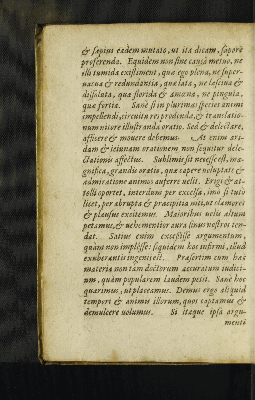 & sæpius eadem mutato, ut ita dicam, sapore
proferenda. Equidem non sine causa metuo, ne
illi tumida existiment, quæ ego plena, ne super-
vacua & redundantia, quæ lata, ne lasciva &
dissoluta, quæ florida & amœna, ne pinguia,
quæ fortia. Sanè si in plurimas species animi
impellendi, circuitu res prodenda, & translatio-
num nitore illustranda oratio. Sed & delectare,
afficere & movere debemus. At enim ari-
dam & ieiunam orationem non sequitur dele-
ctationis affectus. Sublimis sit necesse est, ma-
gnifica, grandis oratio, quæ capere voluptate &
admiratione animos auferre velit. Erigi & at-
tolli oportet, interdum per excelsa, imò si tule
licet, per abrupta & præcipitia niti, ut clamores
& plausus excitemus. Maioribus velis altum
petamus, & vehementior aura sinus nostros ten-
dat. Satius enim excessisse argumentum,
quàm non implêsse: siquidem hoc infirmi, illud
exuberantis ingenij est. Præsertim cum hæc
materia non tam doctorum accuratum iudici-
um, quàm popularem laudem petit. Sanè hoc
quærimus, ut placeamus. Demus ergo aliquid
tempori & animis illorum, quos captamus &
demulcere volumus. Si itaque ipsa argu-
menti